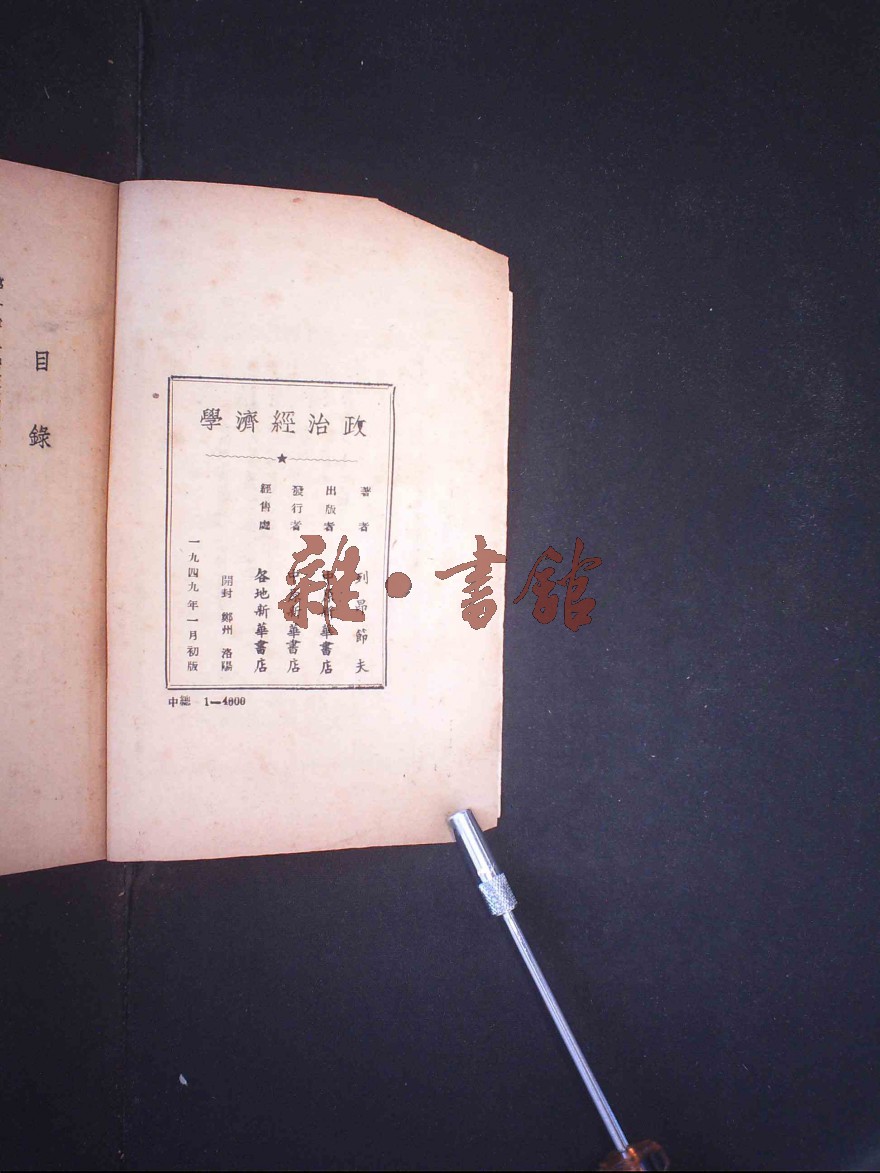 政治經濟學
著者 列昂節夫
出版者 中原新華書店
發行者 中原新華書店
經售處 各地新華書店
開封 鄭州 洛陽
一九四九年一月初版
中總 1—4000
目錄
雜·書館